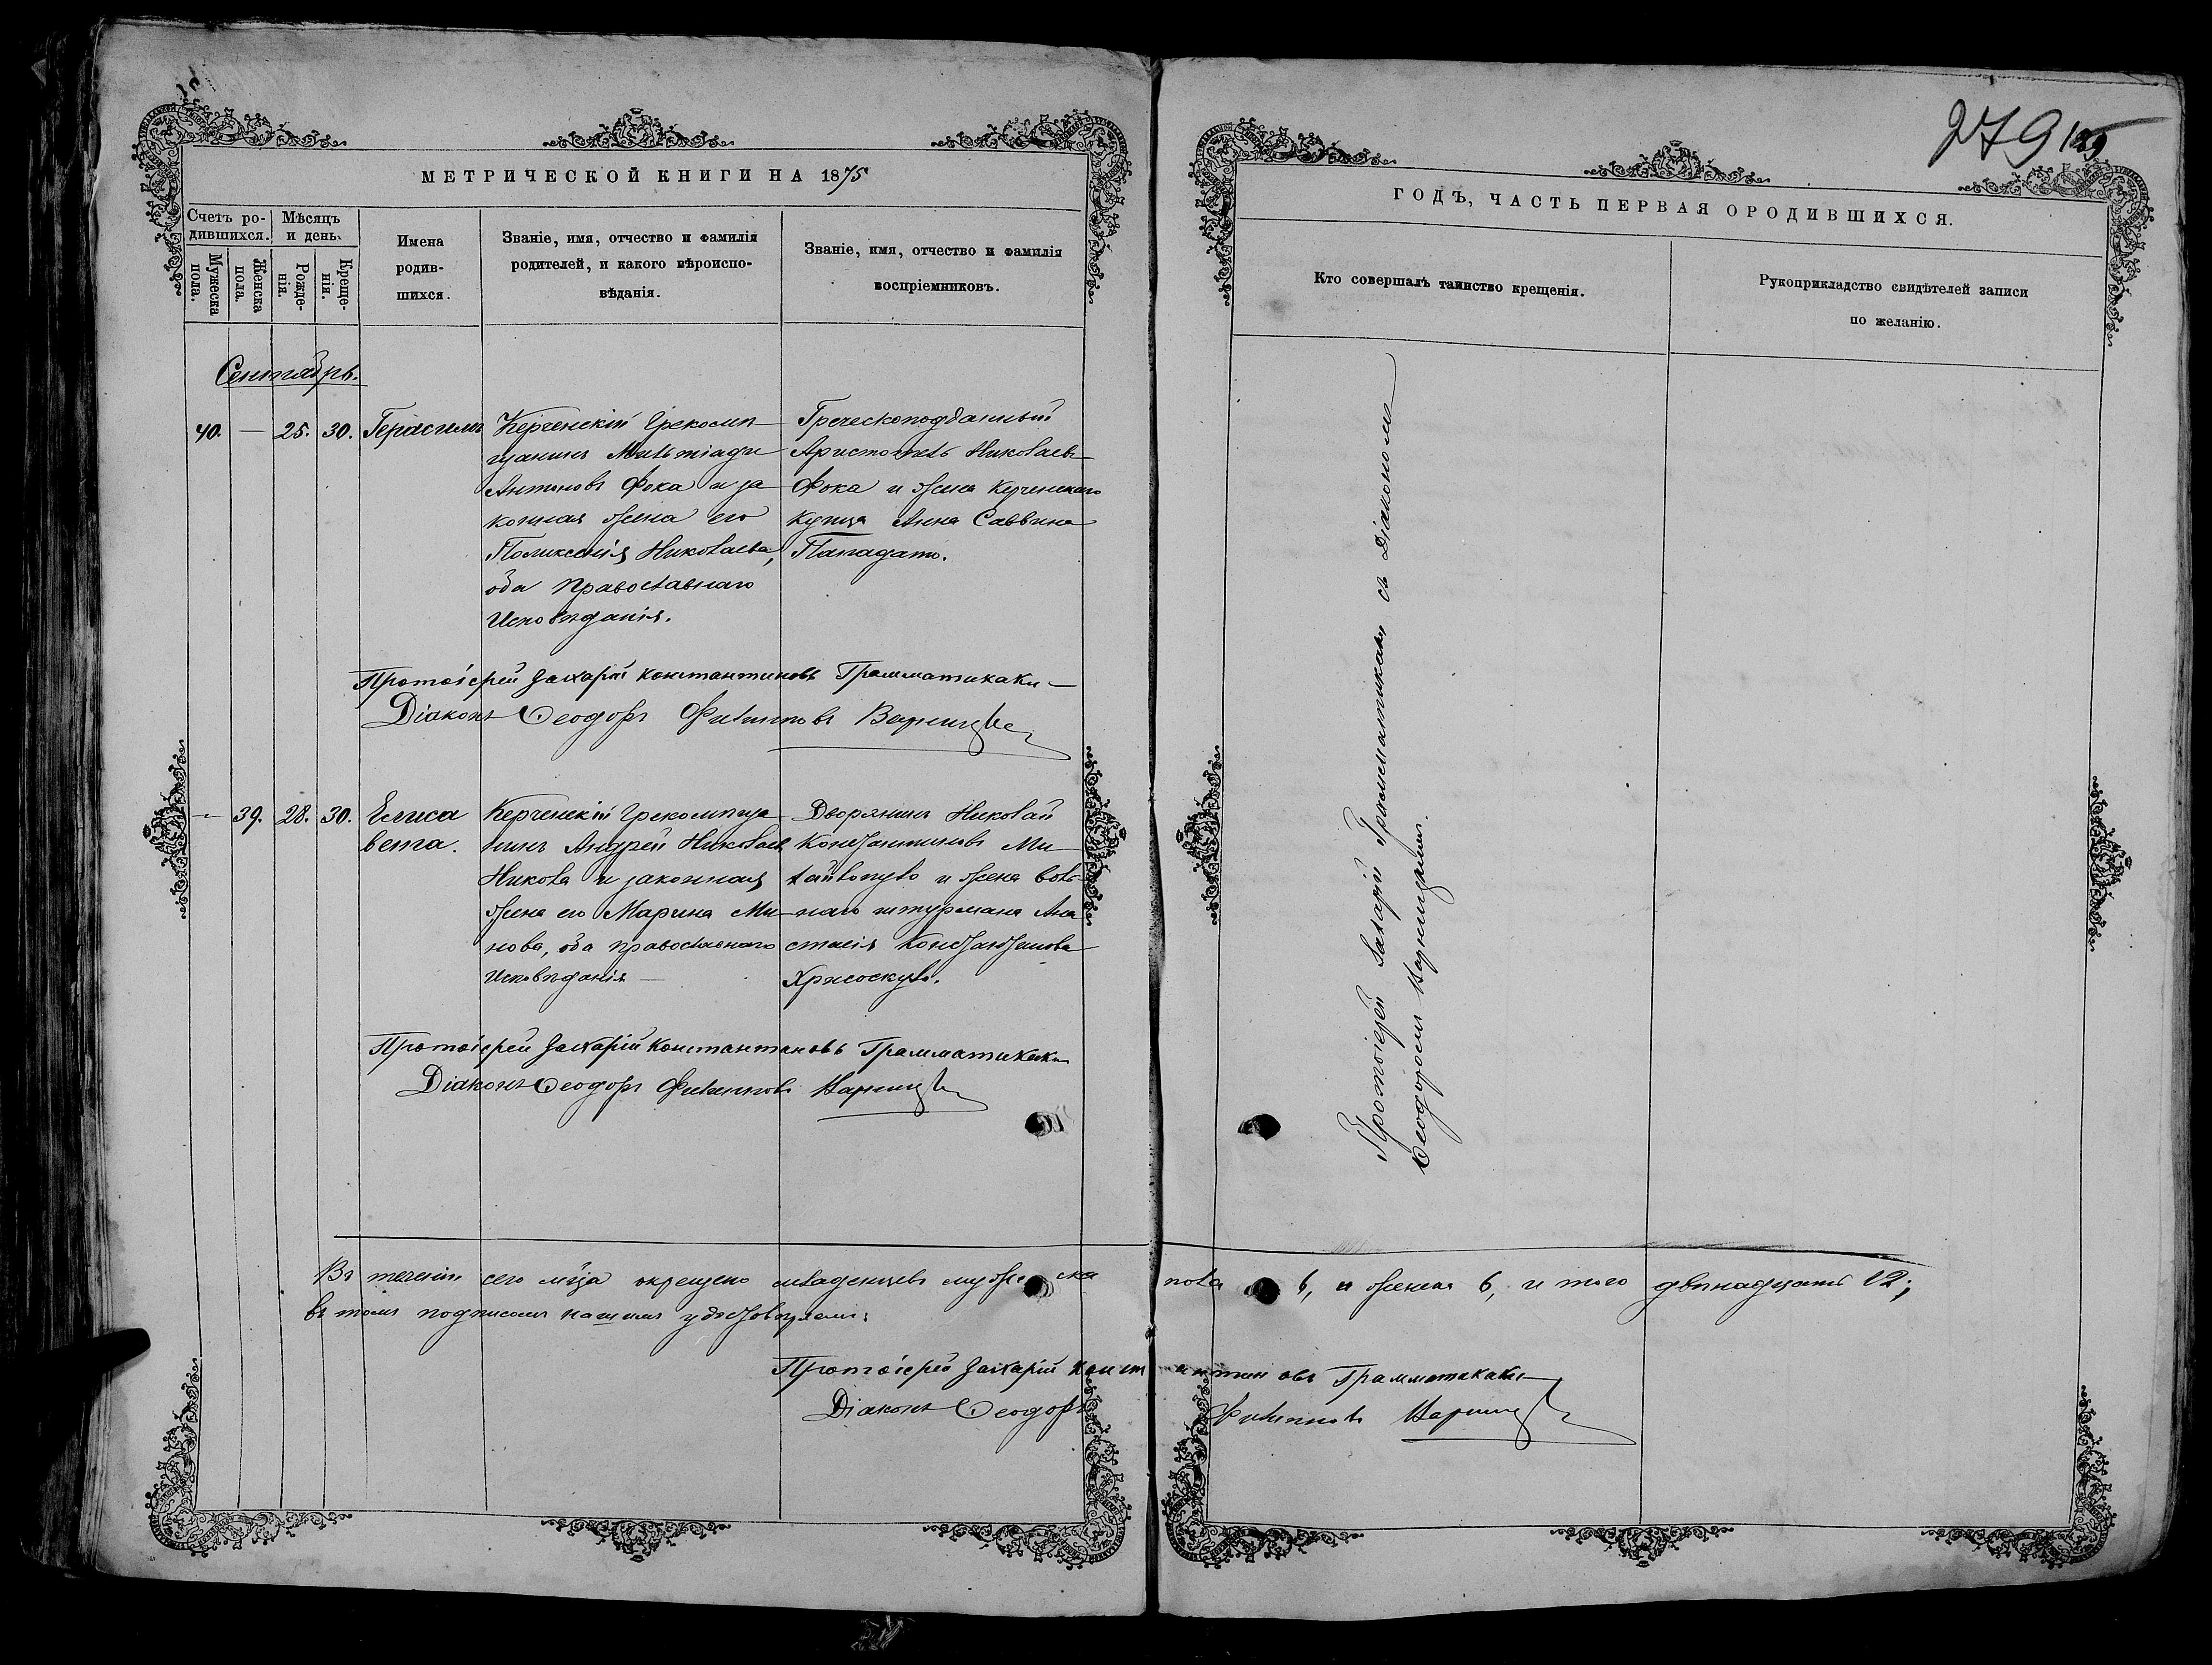 279
МЕТРИЧЕСКОЙ КНИГИ НА 1875
Счетъ ро-
дившихся.
Мѣсяцъ
и день.
Мужеска
пола.
Женска
пола.
Рожде-
нія.
Креще-
нія.
Имена
родив-
шихся.
Званіе, имя, отчество и фамилія
родителей, и какого вѣроиспо-
вѣданія.
Званіе, имя, отчество и фамилія
воспріемниковъ.
Сентябрь.
40. — 25. 30. Герасимъ
Керченскій Грекомѣ-
щанинъ Мильтіади
Антоновъ Фока и за
конная жена его
Поликсенія Николаева,
оба Православнаго
Исповѣданія.
Греческоподданный
Аристотель Николаевъ
Фока и жена Керченскаго
купца Анна Саввина
Пападато.
Протоіерей Захарій Константиновъ Грамматикаки
Діаконъ Ѳеодоръ Филипповъ
— 39. 28. 30. Елиса
вета.
Керченскій Грекомѣща
нинъ Андрей Николаев
Никола и законная
жена его Марина Ми-
нова, оба православнаго
Исповѣданія —
Дворянинъ Николай
Константиновъ Ми
хайлопуло и жена воль
наго штурмана Ана
стасія Константинова
Хрисоскуло.
Протоіерей Захарій Константиновъ Грамматикаки
Діаконъ Ѳеодоръ Филипповъ
ГОДЪ, ЧАСТЬ ПЕРВАЯ О РОДИВШИХСЯ.
Кто совершалъ таинство крещенія.
Рукоприкладство свидѣтелей записи
по желанію.
Протоіерей Захарій Грамматикаки съ Діакономъ
Ѳеодоромъ
Въ теченіи сего м-ца окрещено младенцевъ мужеска пола 6, и женска 6, и того двѣнадцать 12;
въ томъ подписомъ нашимъ удостовѣряемъ:
Протоіерей Захарій Константиновъ Грамматикаки
Діаконъ Ѳеодоръ Филипповъ